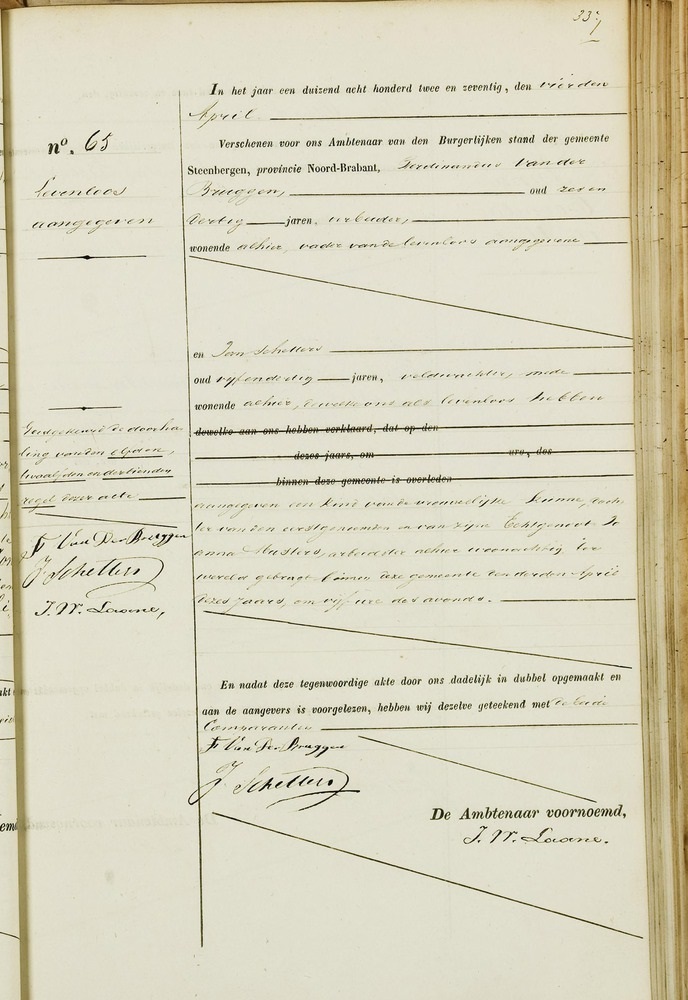 33
In het jaar een duizend acht honderd twee en zeventig, den vierden
April
nº. 65
Levenloos
aangegeven
Verschenen voor ons Ambtenaar van den Burgerlijken stand der gemeente
Steenbergen, provincie Noord-Brabant, Ferdinandus Van der
Bruggen, oud zes en
dertig jaren, arbeider,
wonende alhier, vader van de levenloos aangegevene
en Jan Schetters
oud vijfendertig jaren, veldwachter, mede
wonende alhier, dewelke ons als levenloos hebben
dewelke aan ons hebben verklaard, dat op den
dezes jaars, om ure, des
binnen deze gemeente is overleden
aangegeven een kind van de vrouwelijke kunne, doch
ter van den eerstgenoemden en van zijne Echtgenoote Jo
anna Musters, arbeidster alhier woonachtig ter
wereld gebragt binnen deze gemeente den derden April
dezes jaars, om vijf ure des avonds.
Goedgekeurd de doorha
ling van den elfden,
twaalfden en dertienden
regel dezer acte
F Van Der Bruggen
J Schetters
J. W. Laane,
En nadat deze tegenwoordige akte door ons dadelijk in dubbel opgemaakt en
aan de aangevers is voorgelezen, hebben wij dezelve geteekend met de beide
Comparanten
F Van Der Bruggen
J Schetters
De Ambtenaar voornoemd,
J. W. Laane.